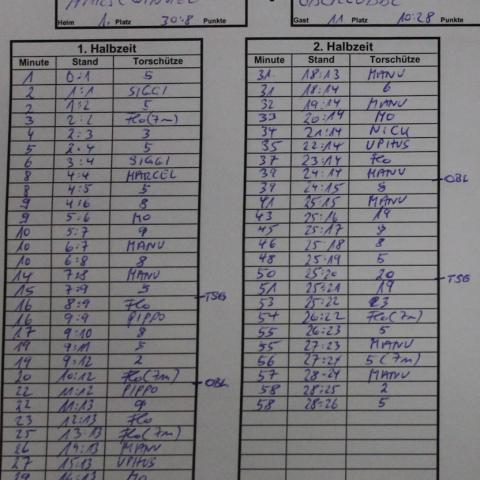 Heim 1. Platz 30:8 Punkte
Gast 11 Platz 10:28 Punkte
1. Halbzeit
Minute Stand Torschütze
1 0:1 5
2 1:1 SIGGI
2 1:2 5
3 2:2 Flo (7m)
4 2:3 3
5 2:4 5
6 3:4 SIGGI
8 4:4 MARCEL
8 4:5 5
9 4:6 8
9 5:6 MO
10 5:7 9
10 6:7 MANU
10 6:8 8
14 7:8 MANU
15 7:9 5
TSG
16 8:9 Flo
16 9:9 PIPPO
17 9:10 8
19 9:11 5
19 9:12 2
20 10:12 Flo (7m)
OBL
22 11:12 PIPPO
22 11:13 9
23 12:13 Flo
25 13:13 Flo (7m)
26 14:13 MANU
27 15:13 UPHUS
29 16:13 MO
2. Halbzeit
Minute Stand Torschütze
31 18:13 MANU
31 18:14 6
32 19:14 MANU
33 20:14 MO
34 21:14 NICK
35 22:14 UPHUS
37 23:14 Flo
39 24:14 MANU
OBL
39 24:15 8
41 25:15 MANU
43 25:16 19
45 25:17 9
46 25:18 8
48 25:19 5
50 25:20 20
TSG
51 25:21 19
53 25:22 3
54 26:22 Flo (7m)
55 26:23 5
55 27:23 MANU
56 27:24 5 (7m)
57 28:24 MANU
58 28:25 2
58 28:26 5